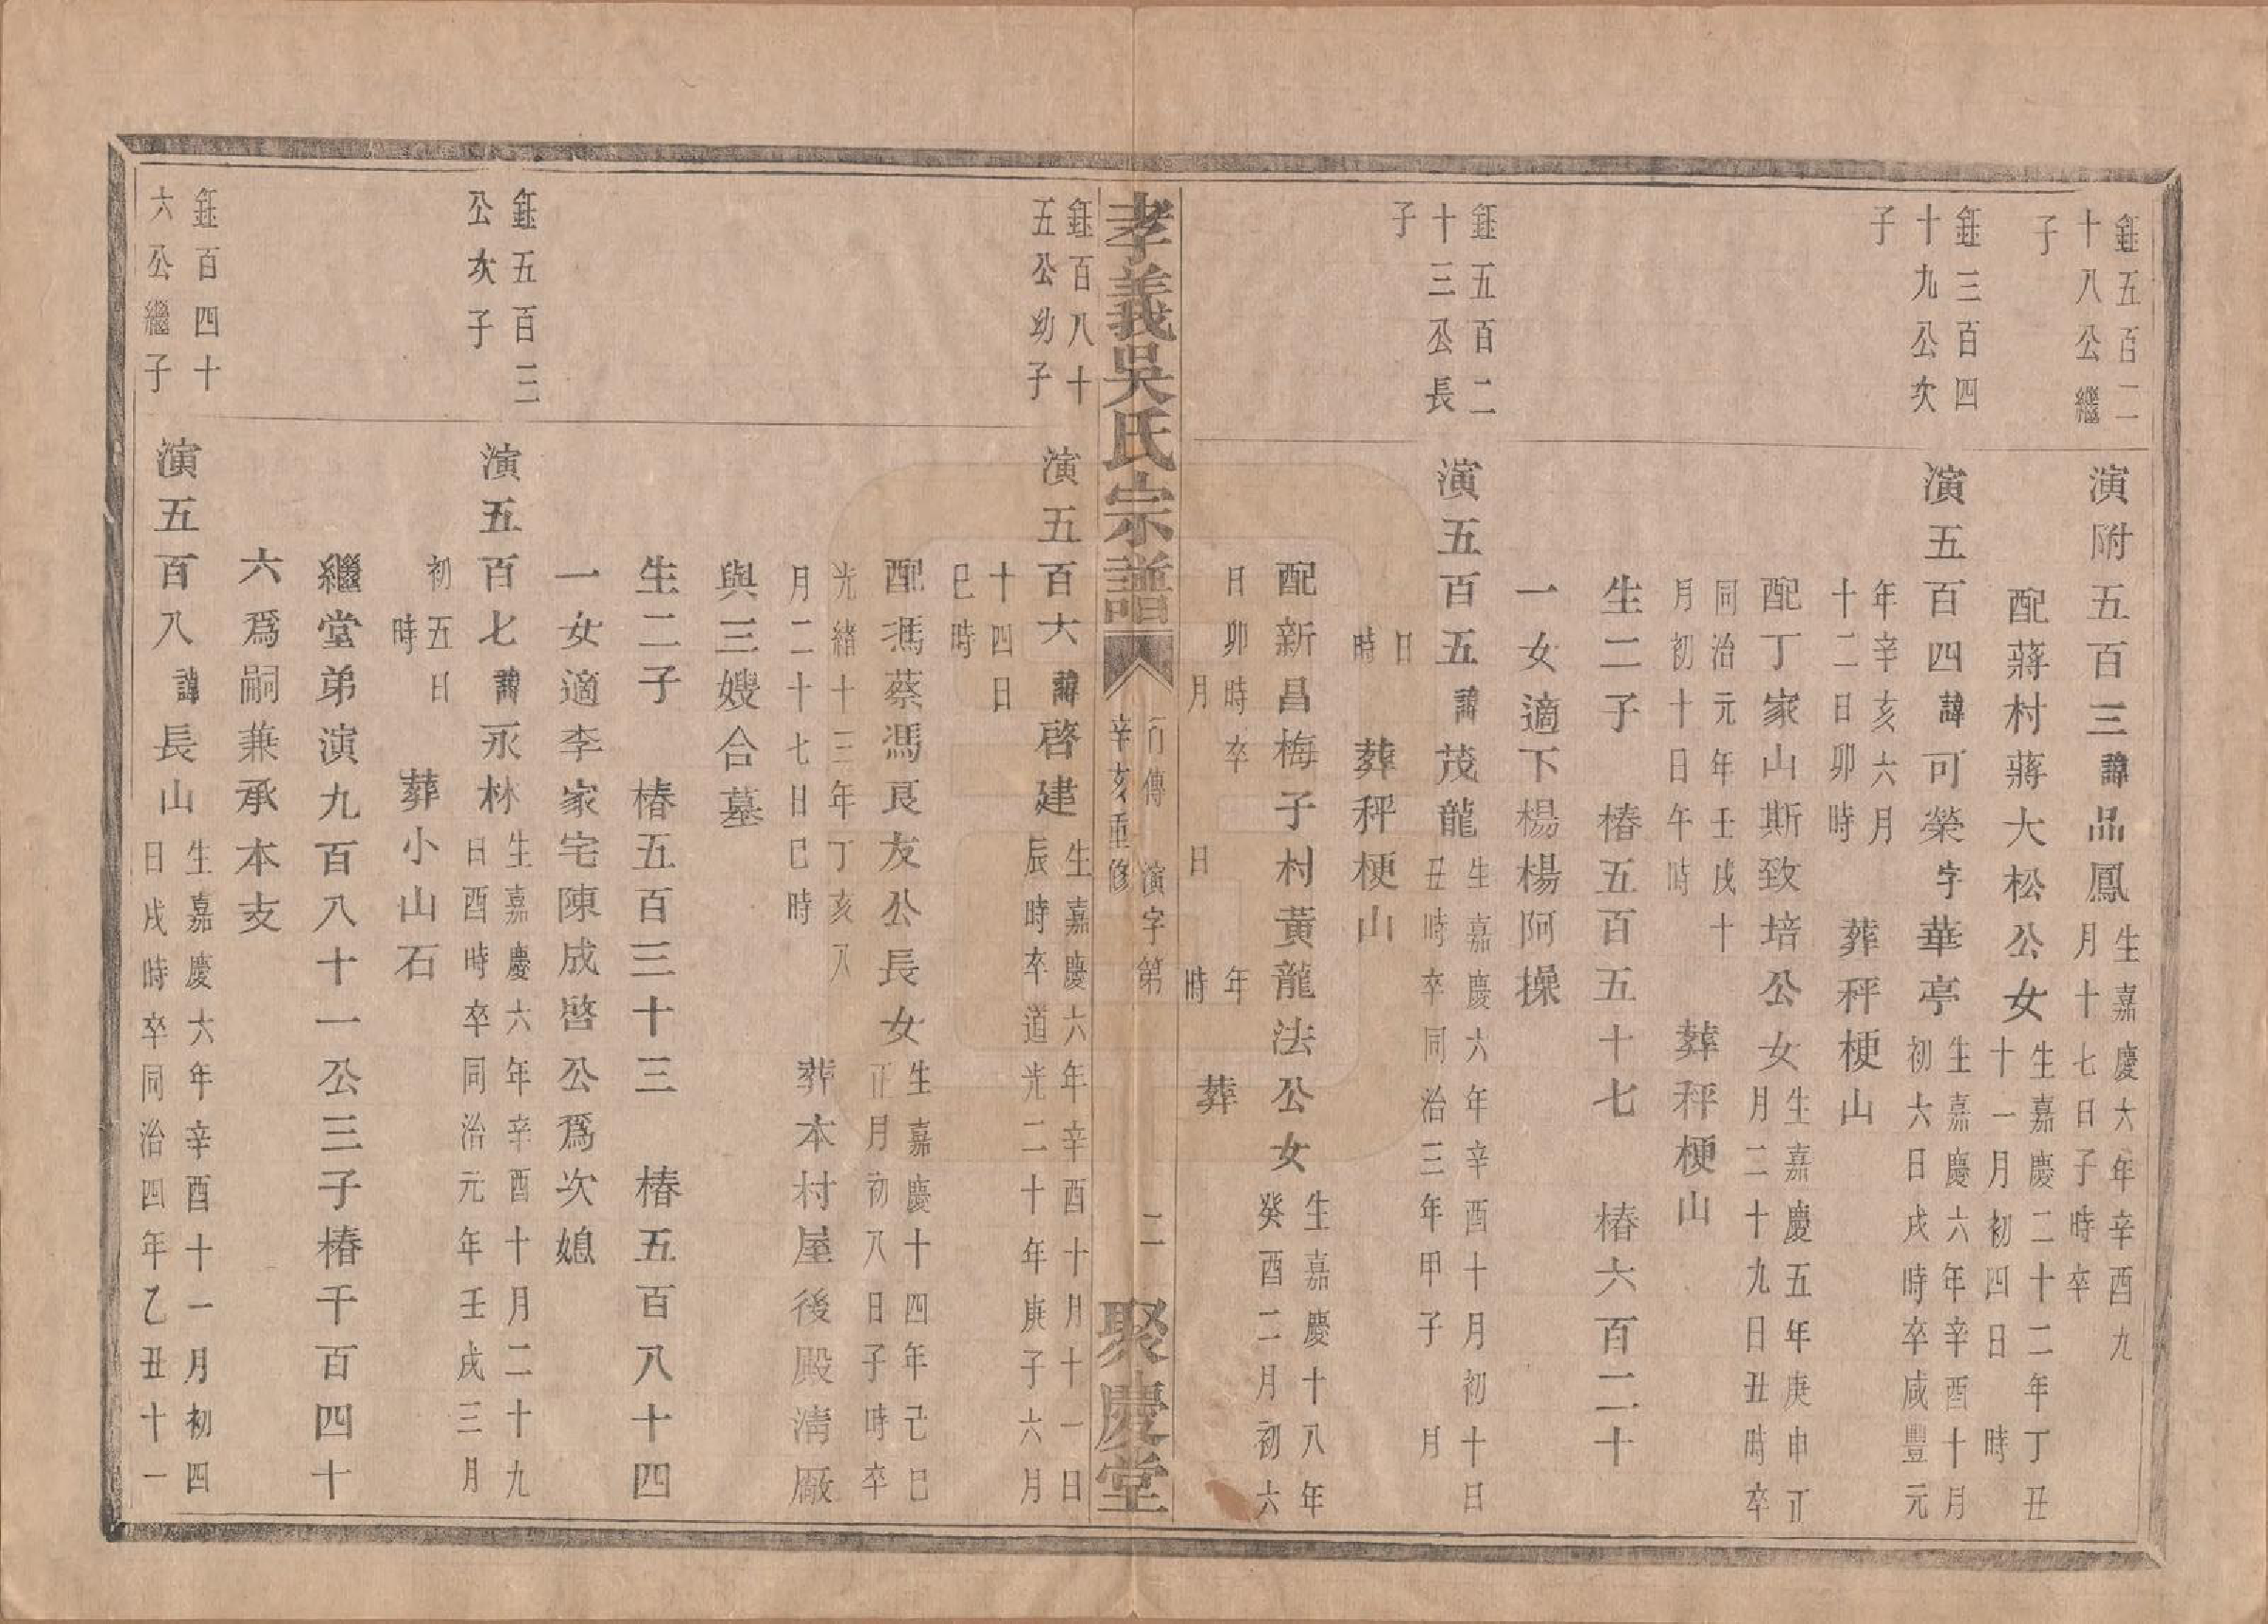 鈺五百二
十八公繼
子
演附五百三諱品鳳
生嘉慶六年辛酉九
月十七日子時卒
配蔣村蔣大松公女
生嘉慶二十二年丁丑
十一月初四日　時
鈺三百四
十九公次
子
演五百四諱可榮字華亭
生嘉慶六年辛酉十月
初六日戌時卒咸豐元
年辛亥六月
十二日卯時
葬秤梗山
配丁家山斯致培公女
生嘉慶五年庚申正
月二十九日丑時卒
同治元年壬戌十
月初十日午時
葬秤梗山
生二子　椿五百五十七　椿六百二十
一女適下楊楊阿操
鈺五百二
十三公長
子
演五百五諱茂龍
生嘉慶六年辛酉十月初十日
丑時卒同治三年甲子　月
日
時
葬秤梗山
配新昌梅子村黃龍法公女
生嘉慶十八年
癸酉二月初六
日卯時卒　年
月　日　時
葬
孝義吳氏宗譜
行傳　演字第　二
辛亥重修
聚慶堂
鈺百八十
五公幼子
演五百六諱啓建
生嘉慶六年辛酉十月十一日
辰時卒道光二十年庚子六月
十四日
巳時
配馮蔡馮良友公長女
生嘉慶十四年己巳
正月初八日子時卒
光緒十三年丁亥八
月二十七日巳時
葬本村屋後殿淸厰
與三嫂合墓
生二子　椿五百三十三　椿五百八十四
一女適李家宅陳成啓公爲次媳
鈺五百三
公次子
演五百七諱永林
生嘉慶六年辛酉十月二十九
日酉時卒同治元年壬戌三月
初五日
時
葬小山石
繼堂弟演九百八十一公三子椿千百四十
六爲嗣兼承本支
鈺百四十
六公繼子
演五百八諱長山
生嘉慶六年辛酉十一月初四
日戌時卒同治四年乙丑十一